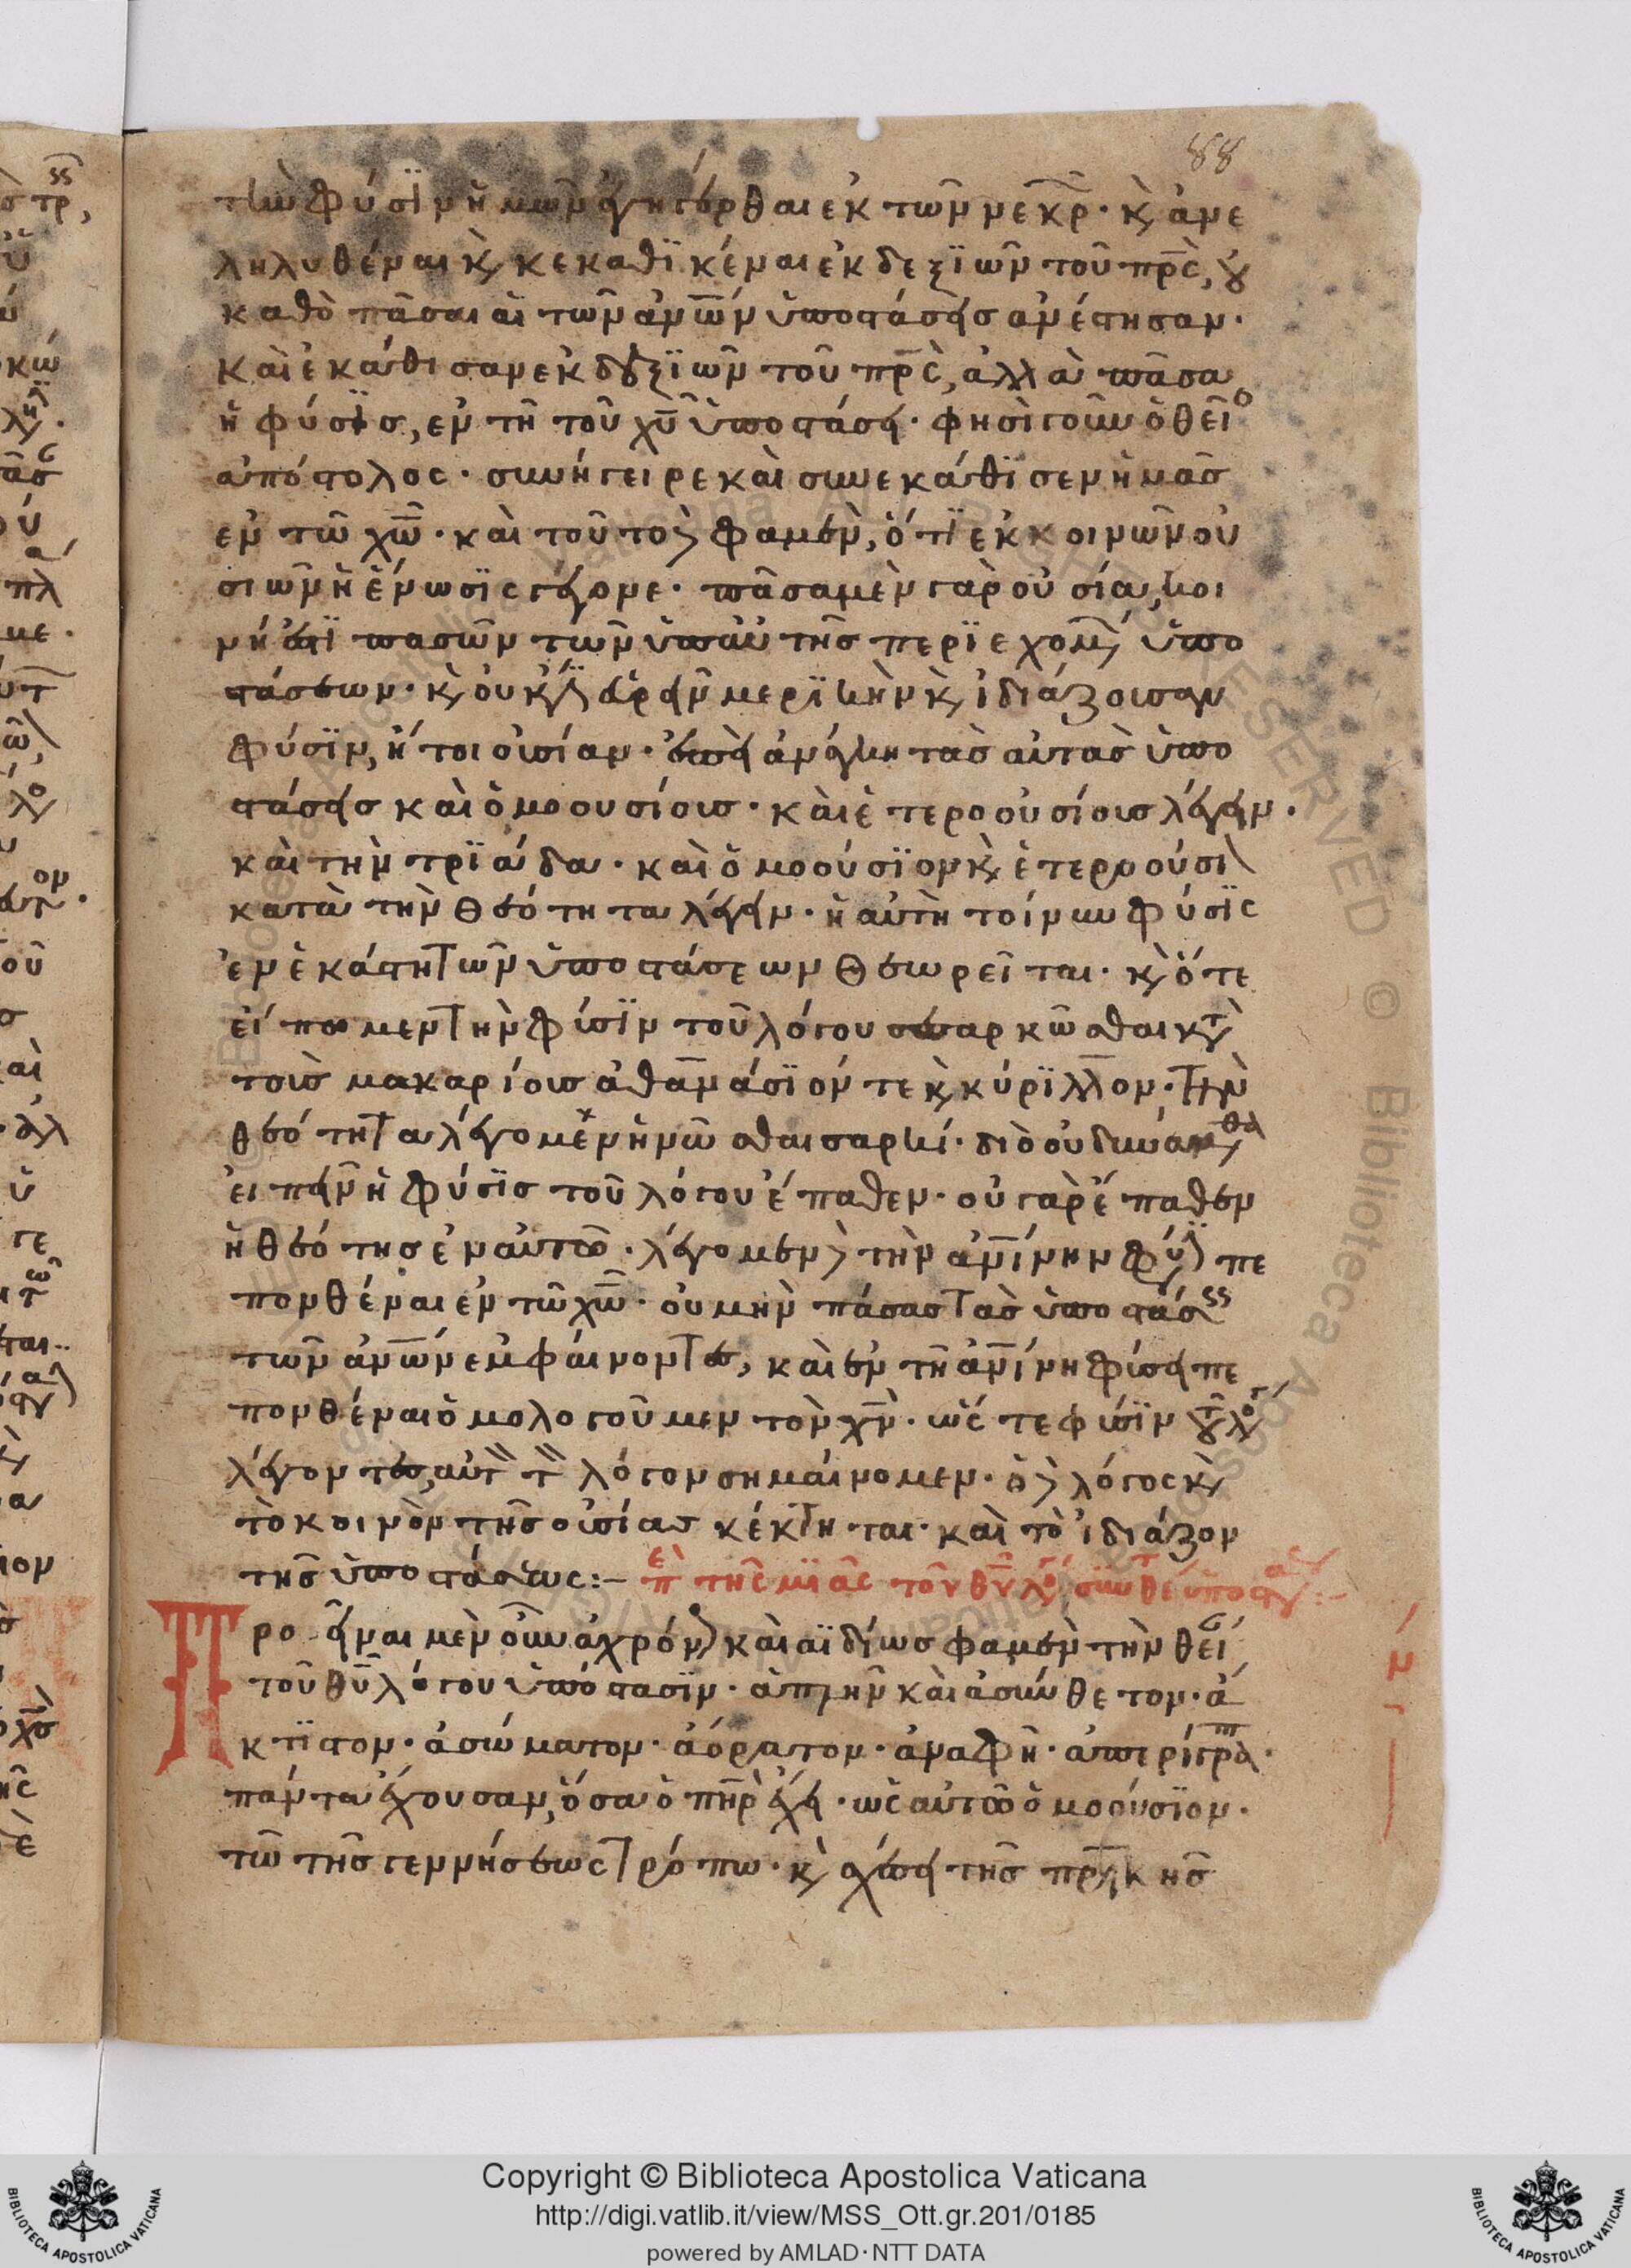 88
τὴν φύσϊν ἡμῶν ἐγηγέρθαι ἐκ τῶν νεκρ̅· κ̀ ἀνε
ληλυθέναι κ̀ κεκαθϊκέναι ἐκ δεξϊῶν τοῦ πρ̅ς, οὐ
καθὸ πᾶσαι αἱ τῶν ἀν̅ων ὑποστάσεις ἀνέστησαν·
καὶ ἐκάθισαν ἐκ δεξϊῶν τοῦ πρ̅ς, ἀλλὰ πᾶσα
ἡ φύσϊς, ἐν τῆ τοῦ χ̅υ ὑποστάσει· φησὶ γοῦν ὁ θεῖο
ἀπόστολος· συνήγειρε καὶ συνεκάθϊσεν ἡμᾶς
ἐν τῶ χ̅ω· καὶ τοῦτο δὲ φαμὲν, ὅτϊ ἐκ κοινῶν οὐ
σιῶν ἡ ἕνωσϊς γέγονε· πᾶσα μὲν γὰρ οὐσία, κοι
νή ἐστϊ πασῶν τῶν ὑπ' αὐτῆς περϊεχομ ὑπο
στάσεων· κ̀ οὐκ ἔστϊν εὑρεῖν μερϊκὴν κ̀ ἰδιάζουσαν
φύσϊν, ἤτοι οὐσίαν· ἐπεὶ ἀνάγκη τὰς αὐτὰς ὑπο
στάσεις καὶ ὁμοουσίους· καὶ ἑτεροουσίους λέγειν·
καὶ τὴν τρϊάδα· καὶ ὁμοούσϊον κ̀ ἑτεροούσι
κατὰ τὴν θεότητα λέγειν· ἡ αὐτὴ τοίνυν φύσϊς
ἐν ἑκάστη τῶν ὑποστάσεων θεωρεῖται· κ̀ ὅτε
εἴπωμεν τὴν φύσϊν τοῦ λόγου σεσαρκῶσθαι κτ̀
τοὺς μακαρίους ἀθανάσϊόν τε κ̀ κύρϊλλον· τὴν
θεότητα λέγομεν ἡνῶσθαι σαρκί· διὸ οὐ δυνάμεθα
εἰπεῖν ἡ φύσϊς τοῦ λόγου ἔπαθεν· οὐ γὰρ ἔπαθεν
ἡ θεότης ἐν αὐτῶ· λέγομεν δὲ τὴν ἀν̅ίνην φύϊ πε
πονθέναι ἐν τῶ χ̅ω· οὐ μὴν πάσας τὰς ὑποστάσ
τῶν ἀν̅ων ἐμφαίνοντες, καὶ ἐν τῆ ἀν̅ίνη φύσει πε
πονθέναι ὁμολογοῦμεν τὸν χ̅ν· ὥστε φύσϊν τ λγ
λέγοντες, αὐτ τ λόγον σημαίνομεν· ὁ δὲ λόγος κ̀
τὸ κοινὸν τῆς οὐσίας κέκτηται· καὶ τὸ ἰδιάζον
τῆς ὑποστάσεως:– πὲ τῆς μϊᾶς τοῦ θ̅υ λγ συνθέτ ὑποστα:–
Προεῖναι μὲν οὖν ἀχρόν καὶ αϊδίως φαμὲν τὴν θεί
τοῦ θ̅υ λόγου ὑπόστασϊν· ἁπλῆν καὶ ἀσύνθετον· ἄ
κτϊστον· ἀσώματον· ἀόρατον· ἀναφῆ· ἀπερίγρα·
πάντα ἔχουσαν, ὅσα ὁ π̅ηρ ἔχει· ὡς αὐτῶ ὁμοούσϊον·
τῶ τῆς γεννήσεως τρόπω· κ̀ σχέσει τῆς πρ̅ϊκῆς
Copyright © Biblioteca Apostolica Vaticana
http://digi.vatlib.it/view/MSS_Ott.gr.201/0185
powered by AMLAD·NTT DATA
BIBLIOTECA APOSTOLICA VATICANA
BIBLIOTECA APOSTOLICA VATICANA